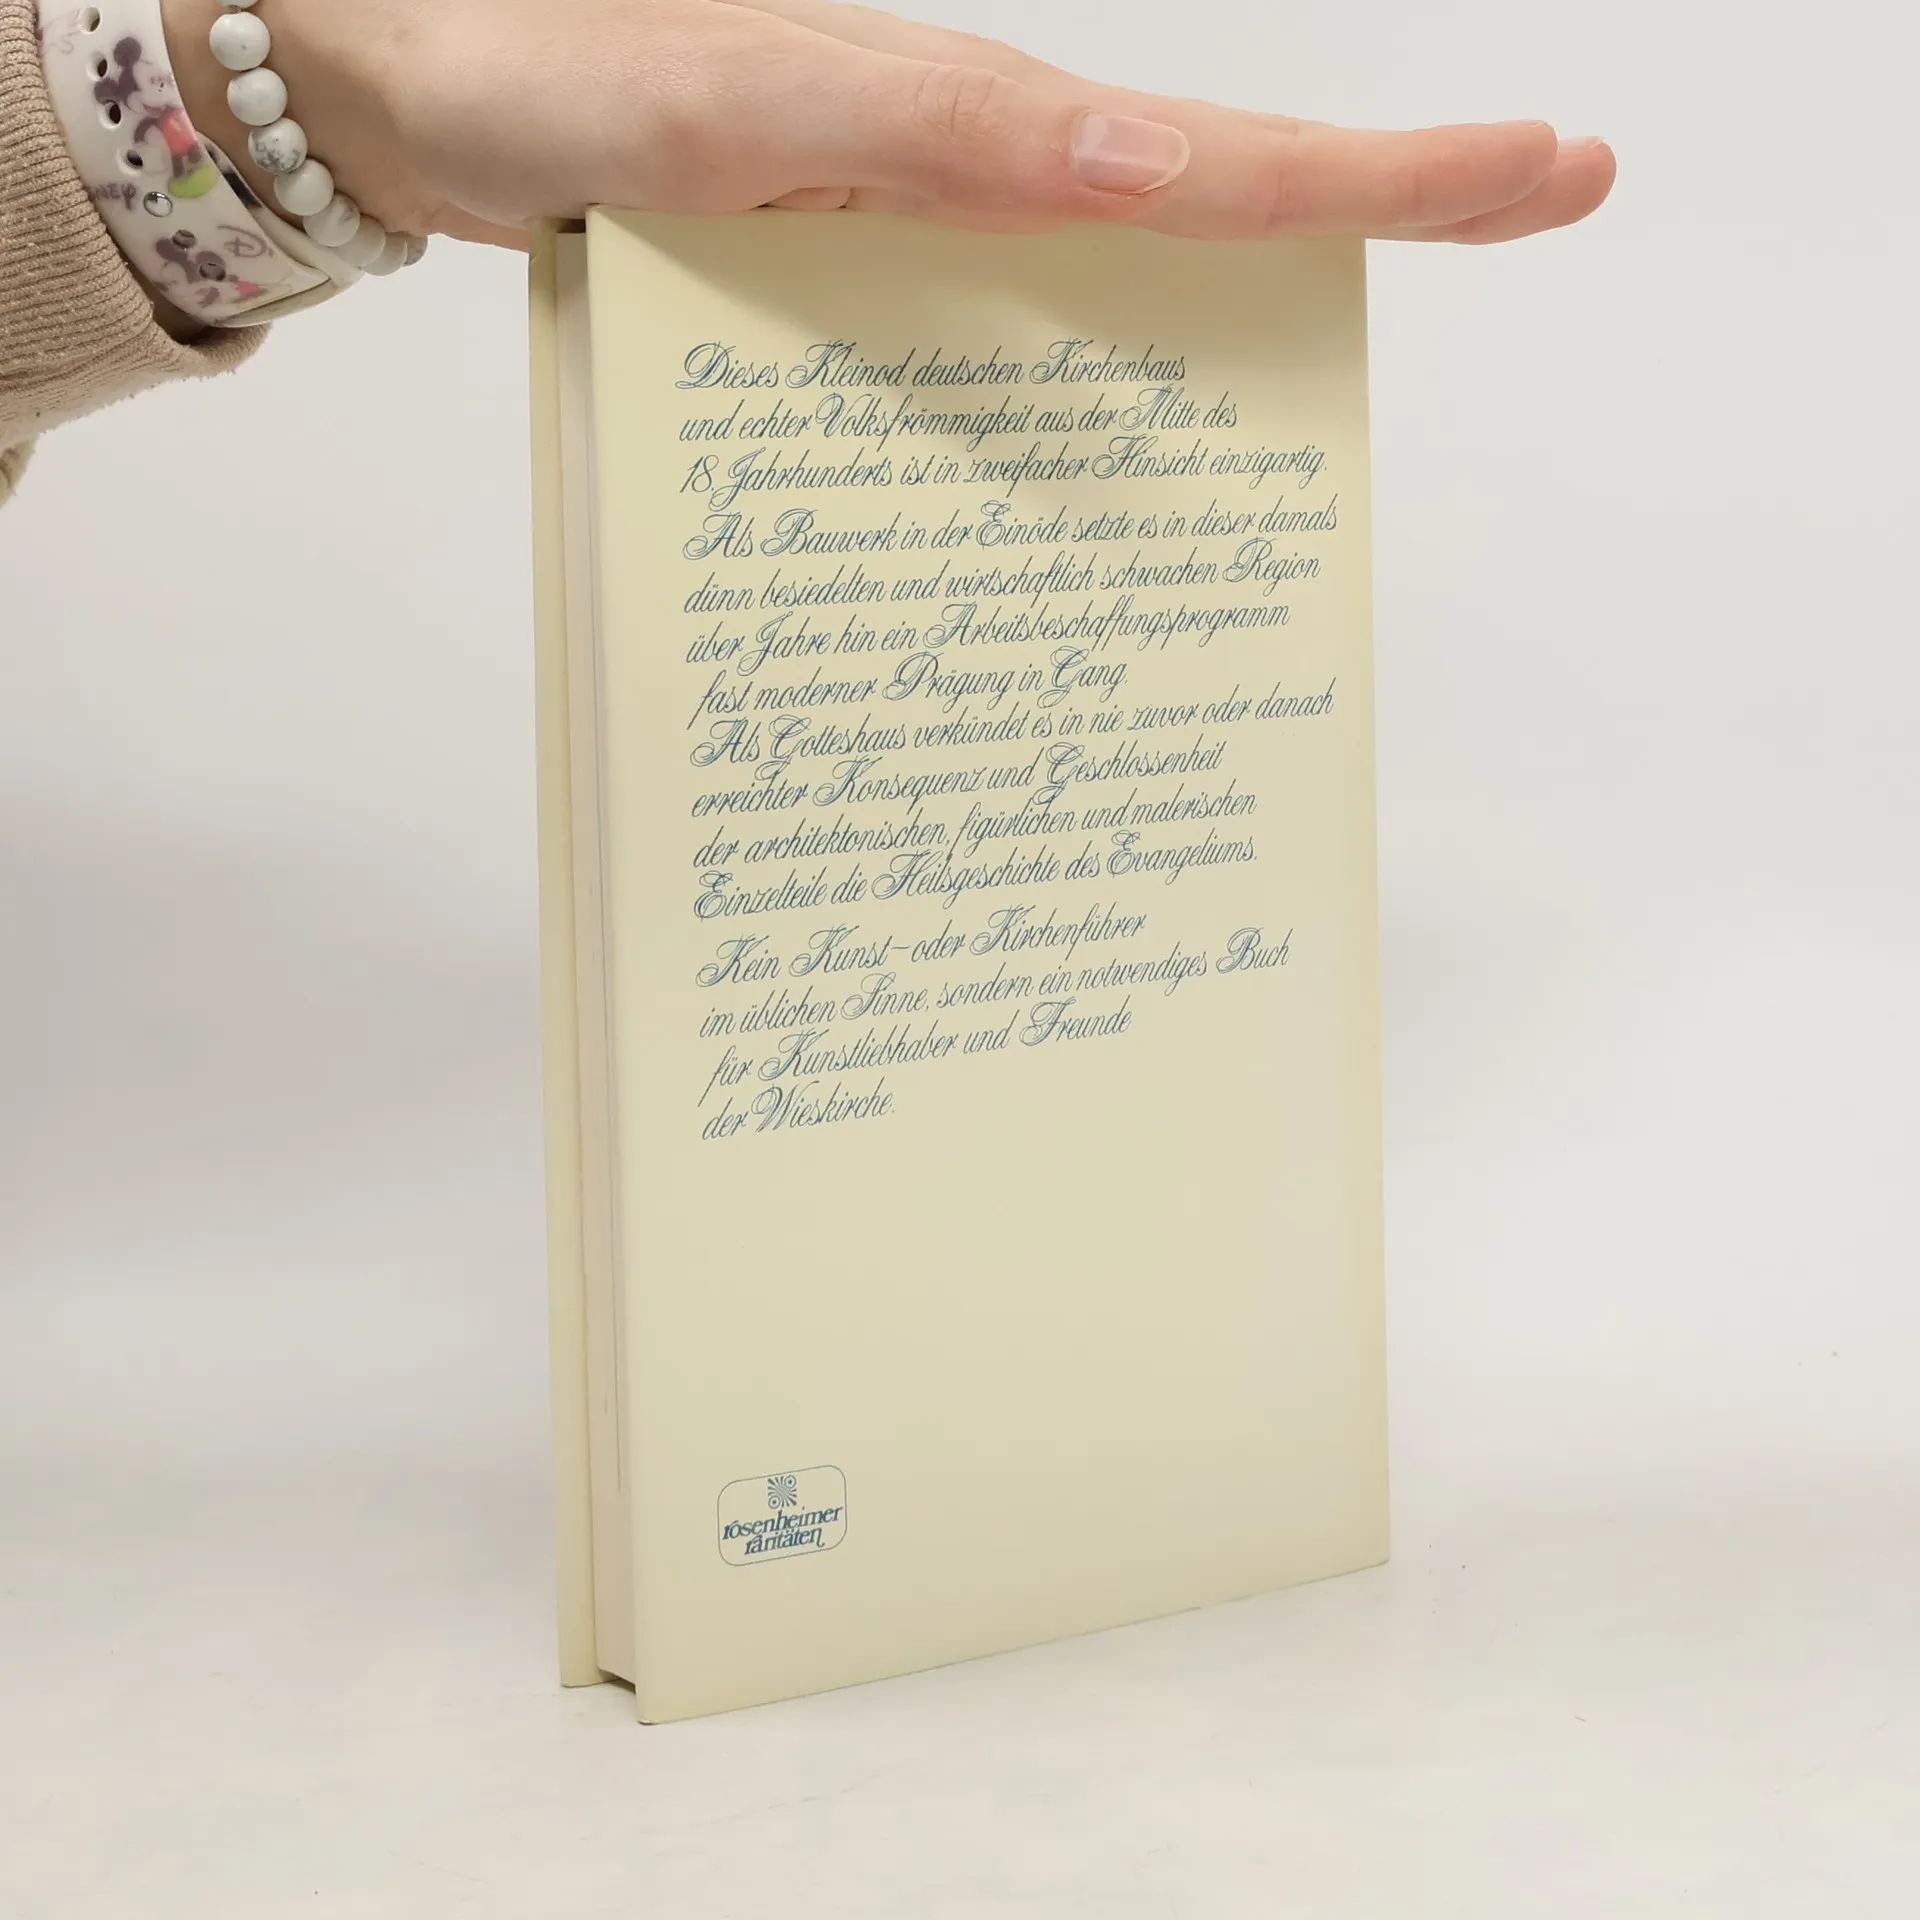 Dieses Kleinod deutschen Kirchenbaus
und echter Volksfrömmigkeit aus der Mitte des
18. Jahrhunderts ist in zweifacher Hinsicht einzigartig.
Als Bauwerk in der Einöde setzte es in dieser damals
dünn besiedelten und wirtschaftlich schwachen Region
über Jahre hin ein Arbeitsbeschaffungsprogramm
fast moderner Prägung in Gang.
Als Gotteshaus verkündet es in nie zuvor oder danach
erreichter Konsequenz und Geschlossenheit
der architektonischen, figürlichen und malerischen
Einzelteile die Heilsgeschichte des Evangeliums.
Kein Kunst- oder Kirchenführer
im üblichen Sinne, sondern ein notwendiges Buch
für Kunstliebhaber und Freunde
der Wieskirche.
rosenheimer
raritäten